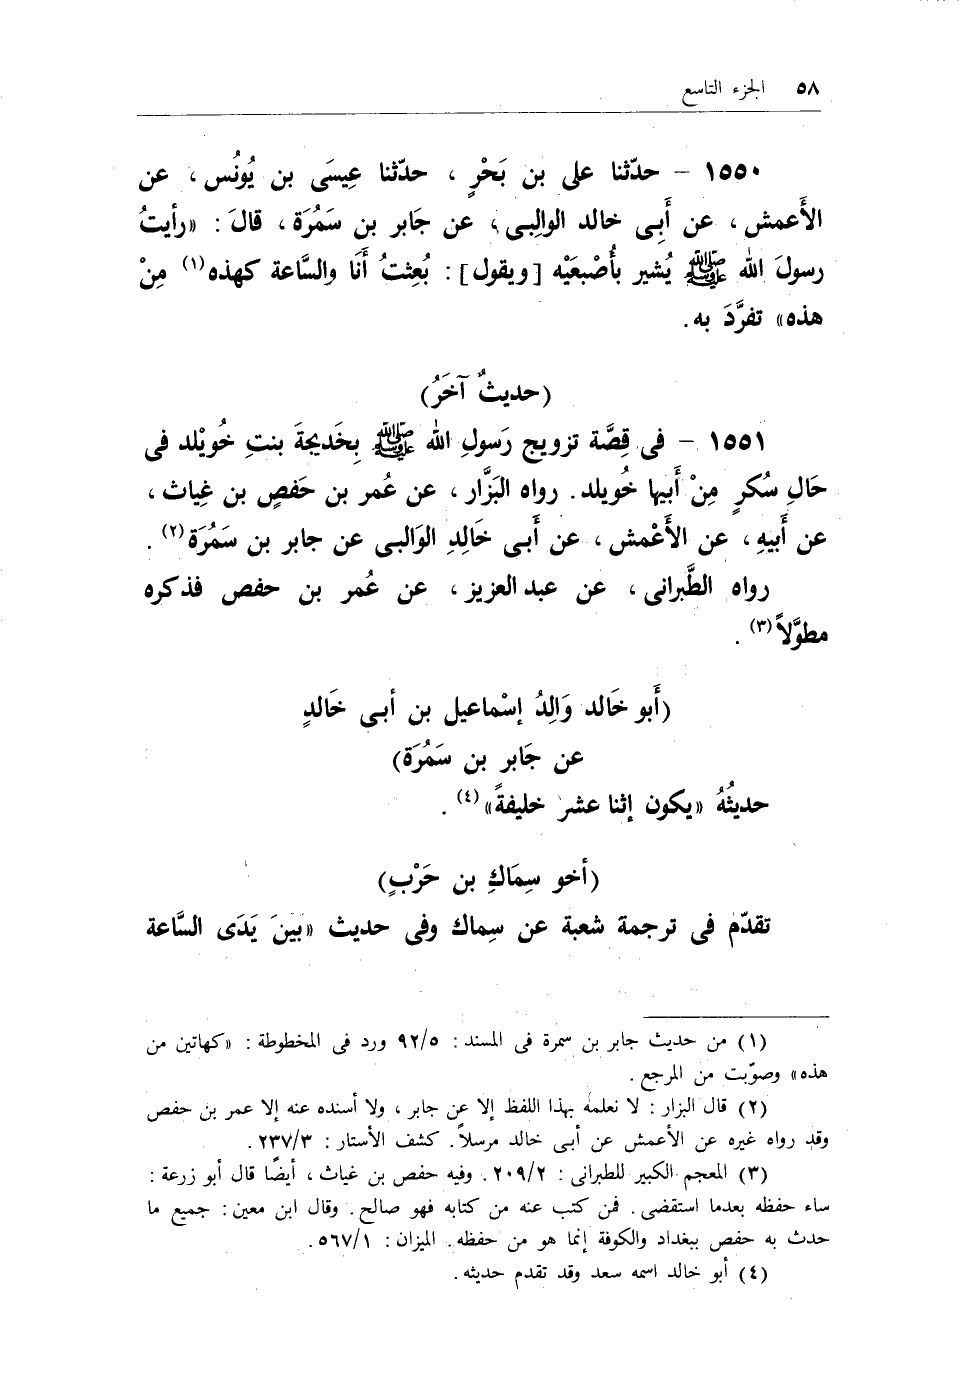 ٥٨ الجزء التاسع
١٥٥٠ – حدّثنا على بن بَحْرٍ ، حدّثنا عِيسَى بن يُونُس ، عن
الأَعمش ، عن أَبِى خالد الوالِبى ، عن جَابر بن سَمُرَة ، قالَ : «رأيتُ
رسولَ الله ﷺ يُشير بأُصْبعَيْه [ويقول] : بُعِثتُ أَنَا والسَّاعة كهذه(١) مِنْ
هذه» تفرَّدَ به.
(حديثٌ آخَرُ)
١٥٥١ – فى قِصَّة تزويج رَسولِ الله ﷺ بِخَديجةَ بنتِ خُويْلد فى
حَالِ سُكرٍ مِنْ أَبيها خُويلد. رواه البَزَّار ، عن عُمر بن حَفصٍ بن غِياث ،
عن أَبيهِ ، عن الأَعْمش ، عن أَبى خَالِدِ الوَالبى عن جابر بن سَمُرَة(٢) .
رواه الطَّبرانى ، عن عبد العزيز ، عن عُمر بن حفص فذكره
مطوَّلاً(٣) .
(أَبو خَالد وَالِدُ إسْماعيل بن أبى خَالدٍ
عن جَابر بن سَمُرَة)
حديثُهُ «يكون إثنا عشر خليفةً»(٤) .
(أخو سِمَاكِ بن حَرْبٍ)
تقدّم فى ترجمة شعبة عن سِماك وفى حديث «بَينَ يَدَى السَّاعة
(١) من حديث جابر بن سمرة فى المسند : ٩٢/٥ ورد فى المخطوطة : «كهاتين من
هذه» وصوّبت من المرجع .
(٢) قال البزار : لا نعلمه بهذا اللفظ إلا عن جابر ، ولا أسنده عنه إلا عمر بن حفص
وقد رواه غيره عن الأعمش عن أبى خالد مرسلاً. كشف الأستار : ٢٣٧/٣ .
(٣) المعجم الكبير للطبرانى : ٢٠٩/٢ . وفيه حفص بن غياث ، أيضًا قال أبو زرعة :
ساء حفظه بعدما استقضى . فمن كتب عنه من كتابه فهو صالح . وقال ابن معين : جميع ما
حدث به حفص ببغداد والكوفة إنما هو من حفظه. الميزان : ٥٦٧/١ .
(٤) أبو خالد اسمه سعد وقد تقدم حديثه .